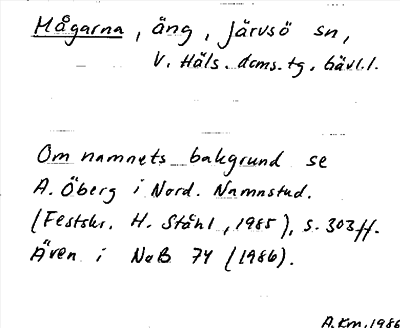 Mågarna, äng, Järvsö sn,
V. Häls. doms.tg. Gävl.l.
Om namnets bakgrund se
A. Öberg i Nord. Namnstud.
(Festskr. H. Ståhl, 1985), s. 303 ff.
Även i NoB 74 (1986).
A.Km. 1986